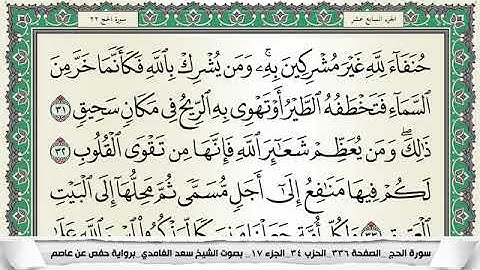 الجزء السابع عشر
سورة الحج ٢٢
حُنَفَآءَ لِلَّهِ غَيْرَ مُشْرِكِينَ بِهِۦۚ وَمَن يُشْرِكْ بِٱللَّهِ فَكَأَنَّمَا خَرَّ مِنَ
ٱلسَّمَآءِ فَتَخْطَفُهُ ٱلطَّيْرُ أَوْ تَهْوِى بِهِ ٱلرِّيحُ فِى مَكَانٍ سَحِيقٍ ٣١
ذَٰلِكَۖ وَمَن يُعَظِّمْ شَعَٰٓئِرَ ٱللَّهِ فَإِنَّهَا مِن تَقْوَى ٱلْقُلُوبِ ٣٢
لَكُمْ فِيهَا مَنَٰفِعُ إِلَىٰٓ أَجَلٍ مُّسَمًّى ثُمَّ مَحِلُّهَآ إِلَى ٱلْبَيْتِ
سورة الحج _ الصفحة ٣٣٦ _ الحزب ٣٤ _ الجزء ١٧ _ بصوت الشيخ سعد الغامدي _ برواية حفص عن عاصم